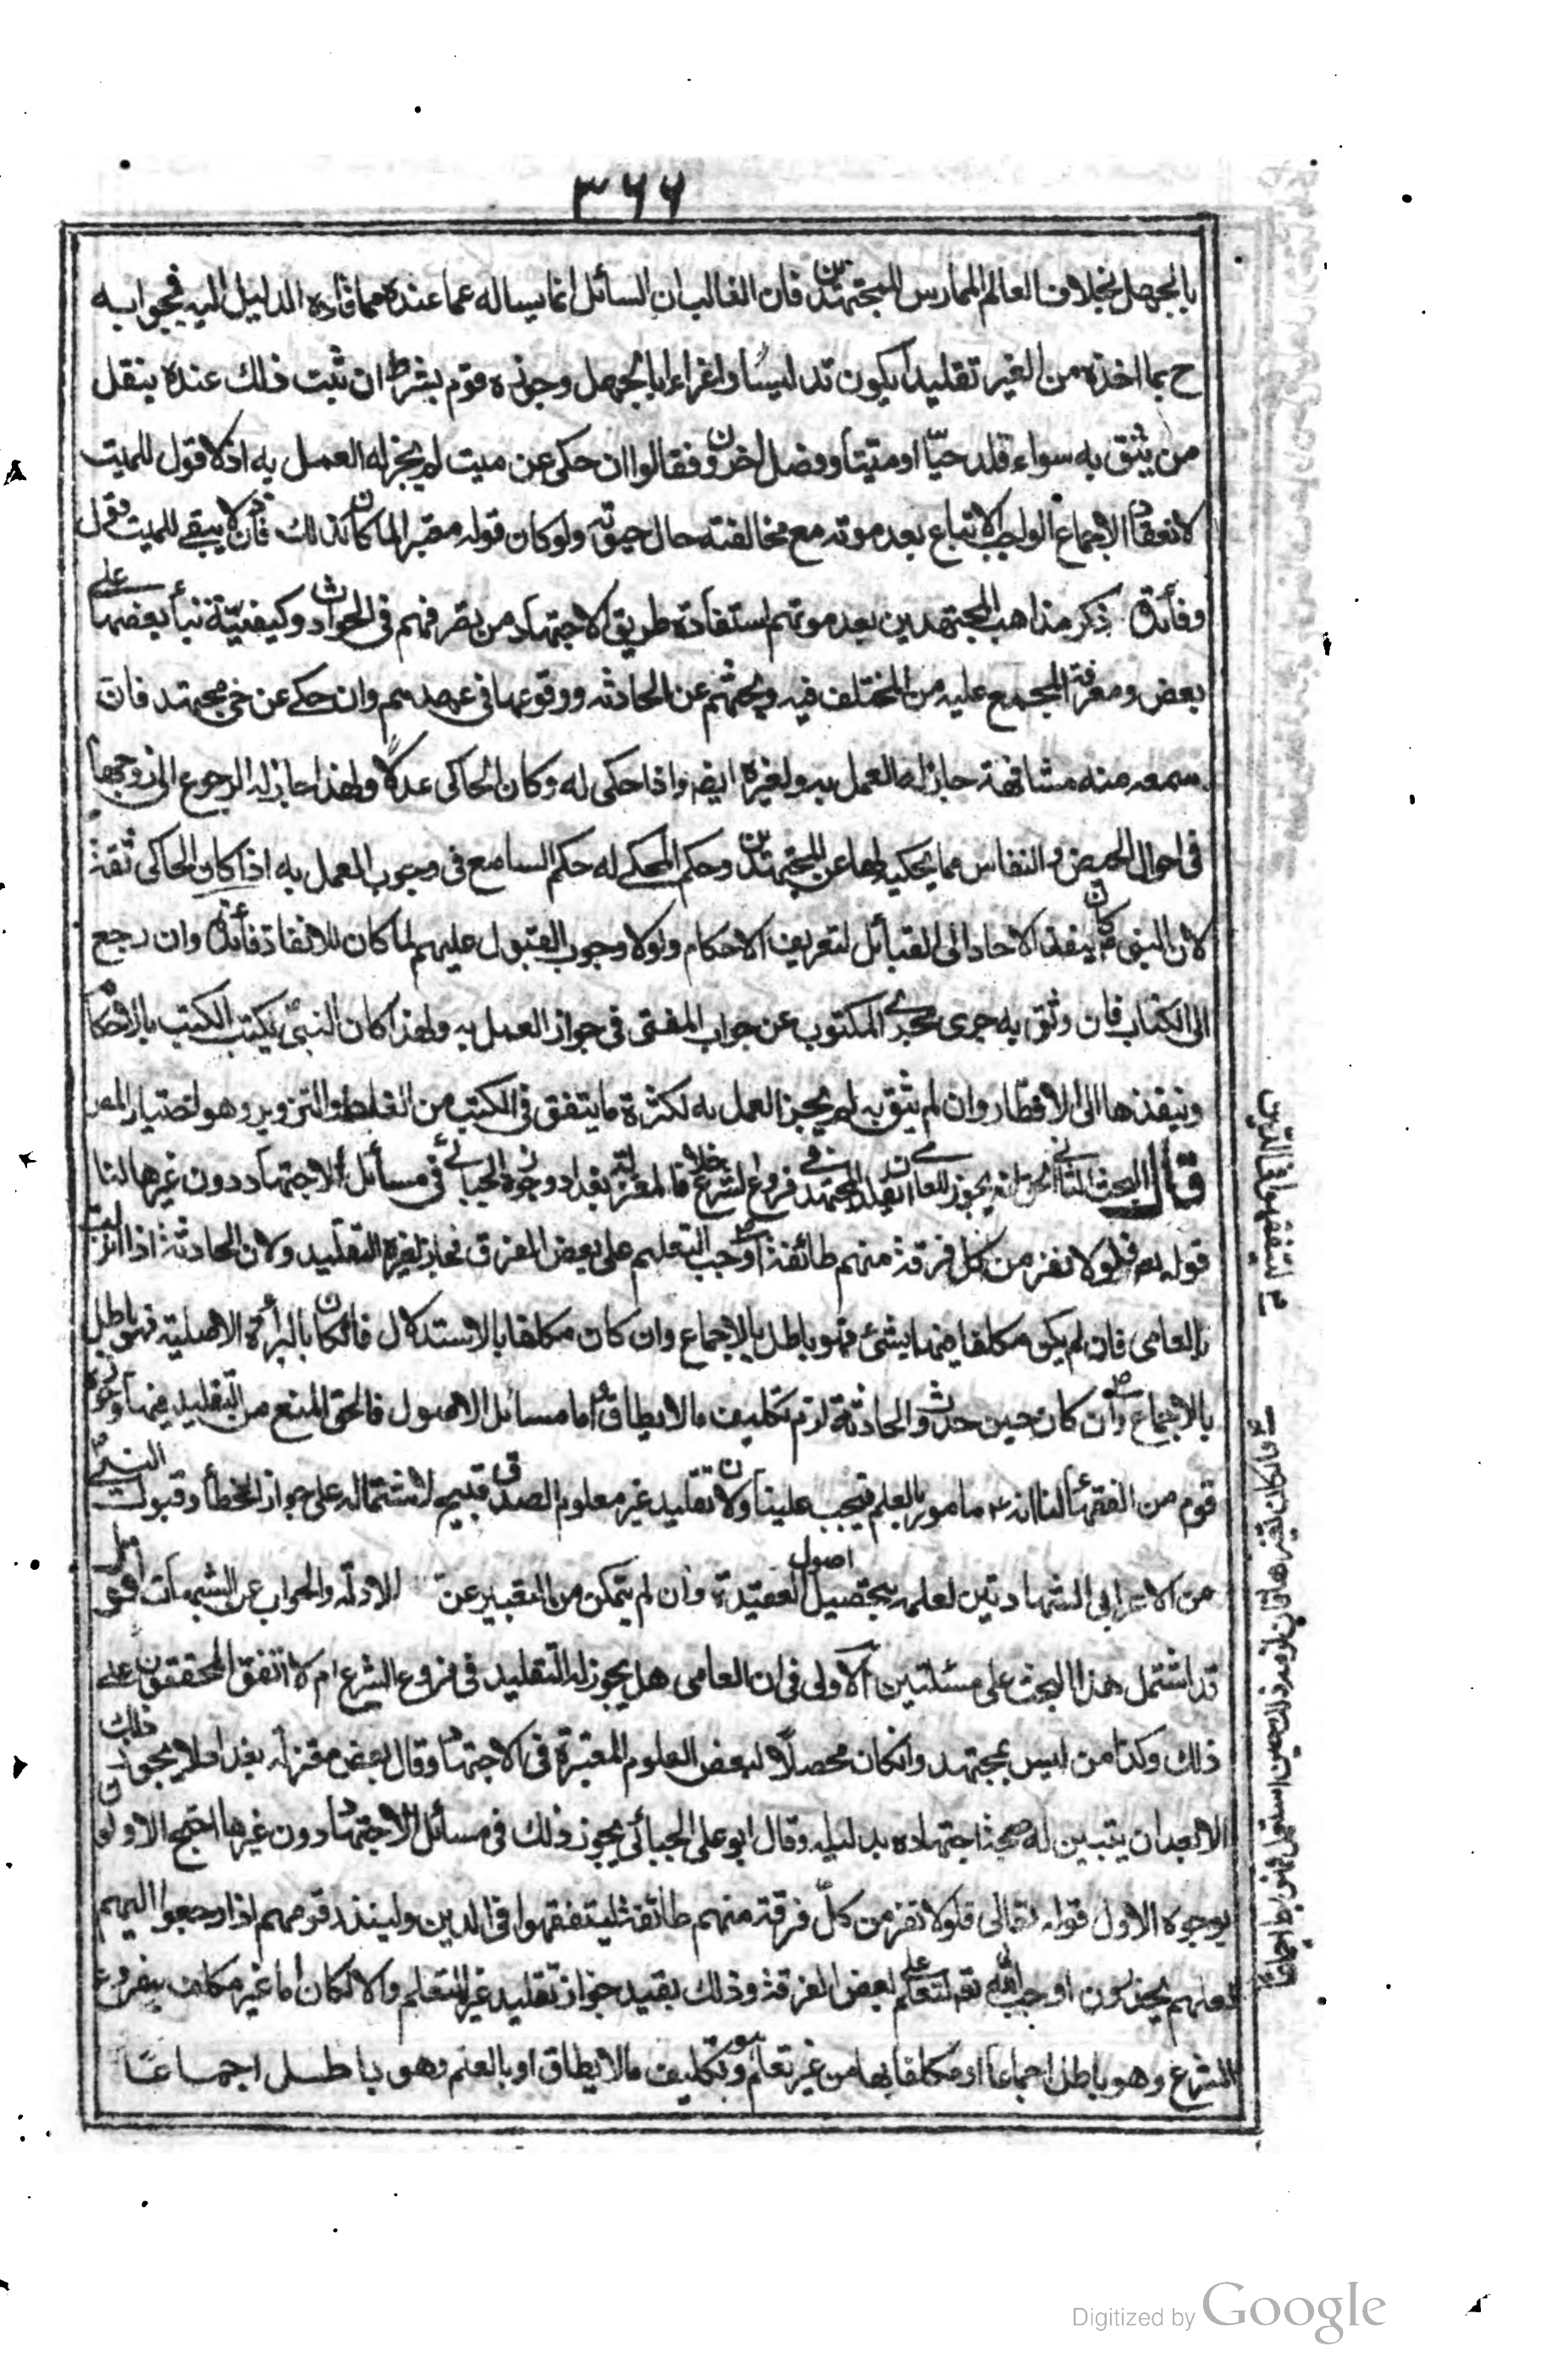 ٣٦٦
بالجهل بخلاف العالم الممارس للمجتهدين فان الغالب ان السائل انما يساله عما عنده مما قاده الدليل اليه فجوابه
ح بما اخذه من الغير تقليدا يكون تدليسا واغراءا بالجهل وجوزه قوم بشرط ان ثبت ذلك عنده بنقل
من يثق به سواء قلد حيّا او ميتا وفصل اخرون فقالوا ان حكى عن ميت لم يجز له العمل به اذ لا قول للميت
لانعقاد الاجماع الواجب الاتباع بعد موته مع مخالفته حال حيوته ولو كان قوله معتبرا لما كان كذلك فاذن لا يبقى للميت قول
وفائدة ذكر مذاهب المجتهدين بعد موتهم استفادة طريق الاجتهاد من تصرفهم فى الحوادث وكيفيّة بناء بعضها على
بعض ومعرفة المجمع عليه من المختلف فيه وبحثهم عن الحادثه ووقوعها فى عهدهم وان حكى عن حى مجتهد فان
سمعه منه مشافهة جاز له العمل به ولغيره ايضا اذا حكى له وكان الحاكى عدلا ولهذا جاز لها الرجوع الى زوجها
فى احوال الحيض والنفاس مما يحكيه لها عن المجتهدين وحكم المحكى له حكم السامع فى وجوب العمل به اذا كان الحاكى ثقة
لان النبى ع كان ينفذ الاحاد الى القبائل لتعريف الاحكام ولولا وجوب القبول عليهم لما كان للانفاذ فائدة وان رجع
الى الكتاب فان وثق به جرى مجرى المكتوب عن جواب المفتى فى جواز العمل به ولهذا كان النبىّ يكتب الكتب بالاحكام
وينفذها الى الاقطار وان لم يثق به لم يجز العمل به لكثرة ما يتفق فى الكتب من الغلط والتزوير وهو اختيار المص
قال البحث الثانى الحق انه يجوز للعامى تقليد المجتهد فى فروع الشرع خلافا لمعتزلة بغداد وجوزه الجبائى فى مسائل الاجتهاد دون غيرها لنا
قوله تع فلولا نفر من كل فرقة منهم طائفة اوجب التعلم على بعض الفرق فجاز لغيره التقليد ولان الحادثة اذا نزلت
بالعامى فان لم يكن مكلفا فيها بشئ فهو باطل بالاجماع وان كان مكلفا بالاستدلال فان كان بالبرأة الاصلية فهو باطل
بالاجماع وان كان حين حدوث الحادثة لزم تكليف ما لا يطاق اما مسائل الاصول فالحق المنع من التقليد فيها وجوزه
قوم من الفقهاء لنا انه ع مامور بالعلم فيجب علينا ولان تقليد غير معلوم الصدق قبيح لاشتماله على جواز الخطأ وقبول النبى
من الاعرابى الشهادتين لعلمه بتحصيل اصول العقيدة وان لم يتمكن من التعبير عن الادلة والجواب عن الشبهات اقول
قد اشتمل هذا البحث على مسئلتين الاولى فى ان العامى هل يجوز له التقليد فى فروع الشرع ام لا اتفق المحققون على
ذلك وكذا من ليس بمجتهد وان كان محصلا لبعض العلوم المعتبرة فى الاجتهاد وقال بعض معتزلة بغداد لا يجوز ذلك
الا بعد ان يتبين له صحة اجتهاده بدليله وقال ابو على الجبائى يجوز ذلك فى مسائل الاجتهاد دون غيرها احتج الاولون
بوجوه الاول قوله تعالى فلولا نفر من كلّ فرقة منهم طائفة ليتفقهوا فى الدين ولينذروا قومهم اذا رجعوا اليهم
لعلهم يحذرون اوجب الله تع التعلم على بعض الفرقة وذلك يفيد جواز تقليد غير المتعلم والا لكان اما غير مكلف بفروع
الشرع وهو باطل اجماعا او مكلفا بها من غير تعلم وهو تكليف ما لا يطاق او بالعلم وهو باطل اجماعا
ليتفقهوا فى الدين